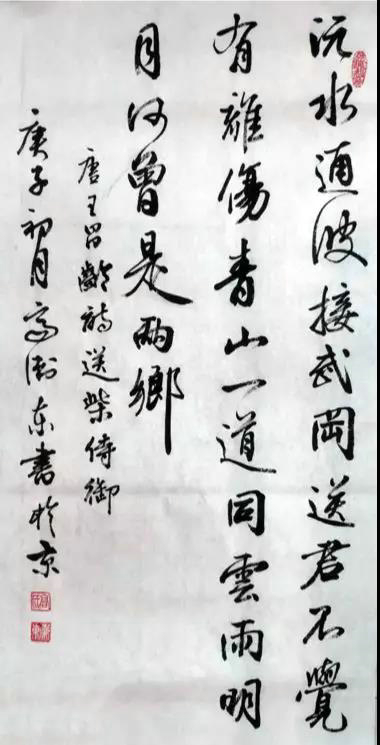 沅水通波接武岡送君不覺
有離傷青山一道同雲雨明
月何曾是兩鄉
唐王昌齡詩送柴侍御
庚子初月高东書於京